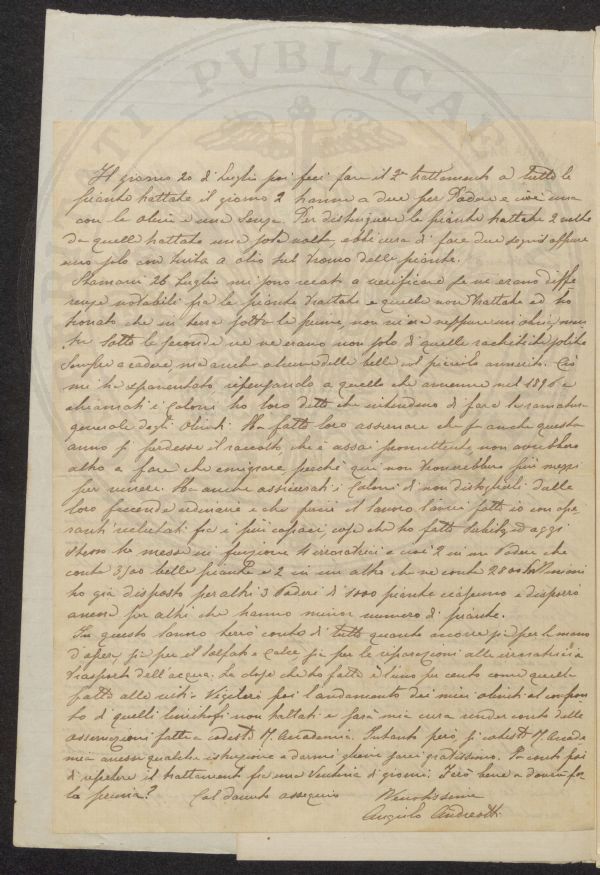 Il giorno 20 di Luglio poi feci fare il 2º trattamento a tutte le
piante trattate il giorno 2 hanno a due per Podere e cioè una
con le olive e una senza. Per distinguere le piante trattate 2 volte
da quelle trattate una sola volta, ebbi cura di fare due segni oppure
uno solo con tinta a olio sul tronco delle piante.
Stamani 26 Luglio mi sono recato a verificare se ne erano diffe
renze notabili fra le piante trattate e quelle non trattate ed ho
trovato che in terra sotto le prime, non vi era neppure un'oliva, men
tre sotto le seconde ve ne erano non solo di quelle rachitiche solite
sempre a cadere, ma anche alcune delle belle col picciolo annerito. Ciò
mi ha spaventato ripensando a quello che avvenne nel 1896 e
chiamati i Coloni ho loro detto che intendevo di fare la ramatura
generale degli Olivi. Ho fatto loro osservare che se anche questo
anno si perdesse il raccolto che è assai promettente, non avrebbero
altro a fare che emigrare perchè qui non troverebbero più mezzi
per vivere. Ho anche assicurati i Coloni di non distoglierli dalle
loro faccende ordinarie e che farei il lavoro l'avrei fatto io con ope
ranti reclutati fra i più capaci, cosa che ho fatto subito, ed oggi
stesso ho messo in funzione 4 irroratrici e cioè 2 in un Podere che
conta 3500 belle piante e 2 in un altro che ne conta 2800
ho già disposto per altri 3 Poderi di 1000 piante ciascuno e disporrò
ancora per altri che hanno minor numero di piante.
In questo lavoro terrò conto di tutto quanto occorre sia per la mano
d'opera, sia per il Solfato e Calce, sia per le riparazioni alle irroratrici e
trasporto dell'acqua. La dose che ho fatto è l'uno per cento come quella
fatta alle viti. Vigilerò poi l'andamento dei miei oliveti al confron
to di quelli limitrofi non trattati e sarà mia cura render conto delle
osservazioni fatte a codesta R. Accademia. Intanto però, se codesta R. Accade
mia avesse qualche istruzione a darmi gliene sarei gratissimo. Io conto poi
di ripetere il trattamento fra una ventina di giorni. Farò bene a
la prima? Col dovuto ossequio Devotissimo
Angiolo Andreotti